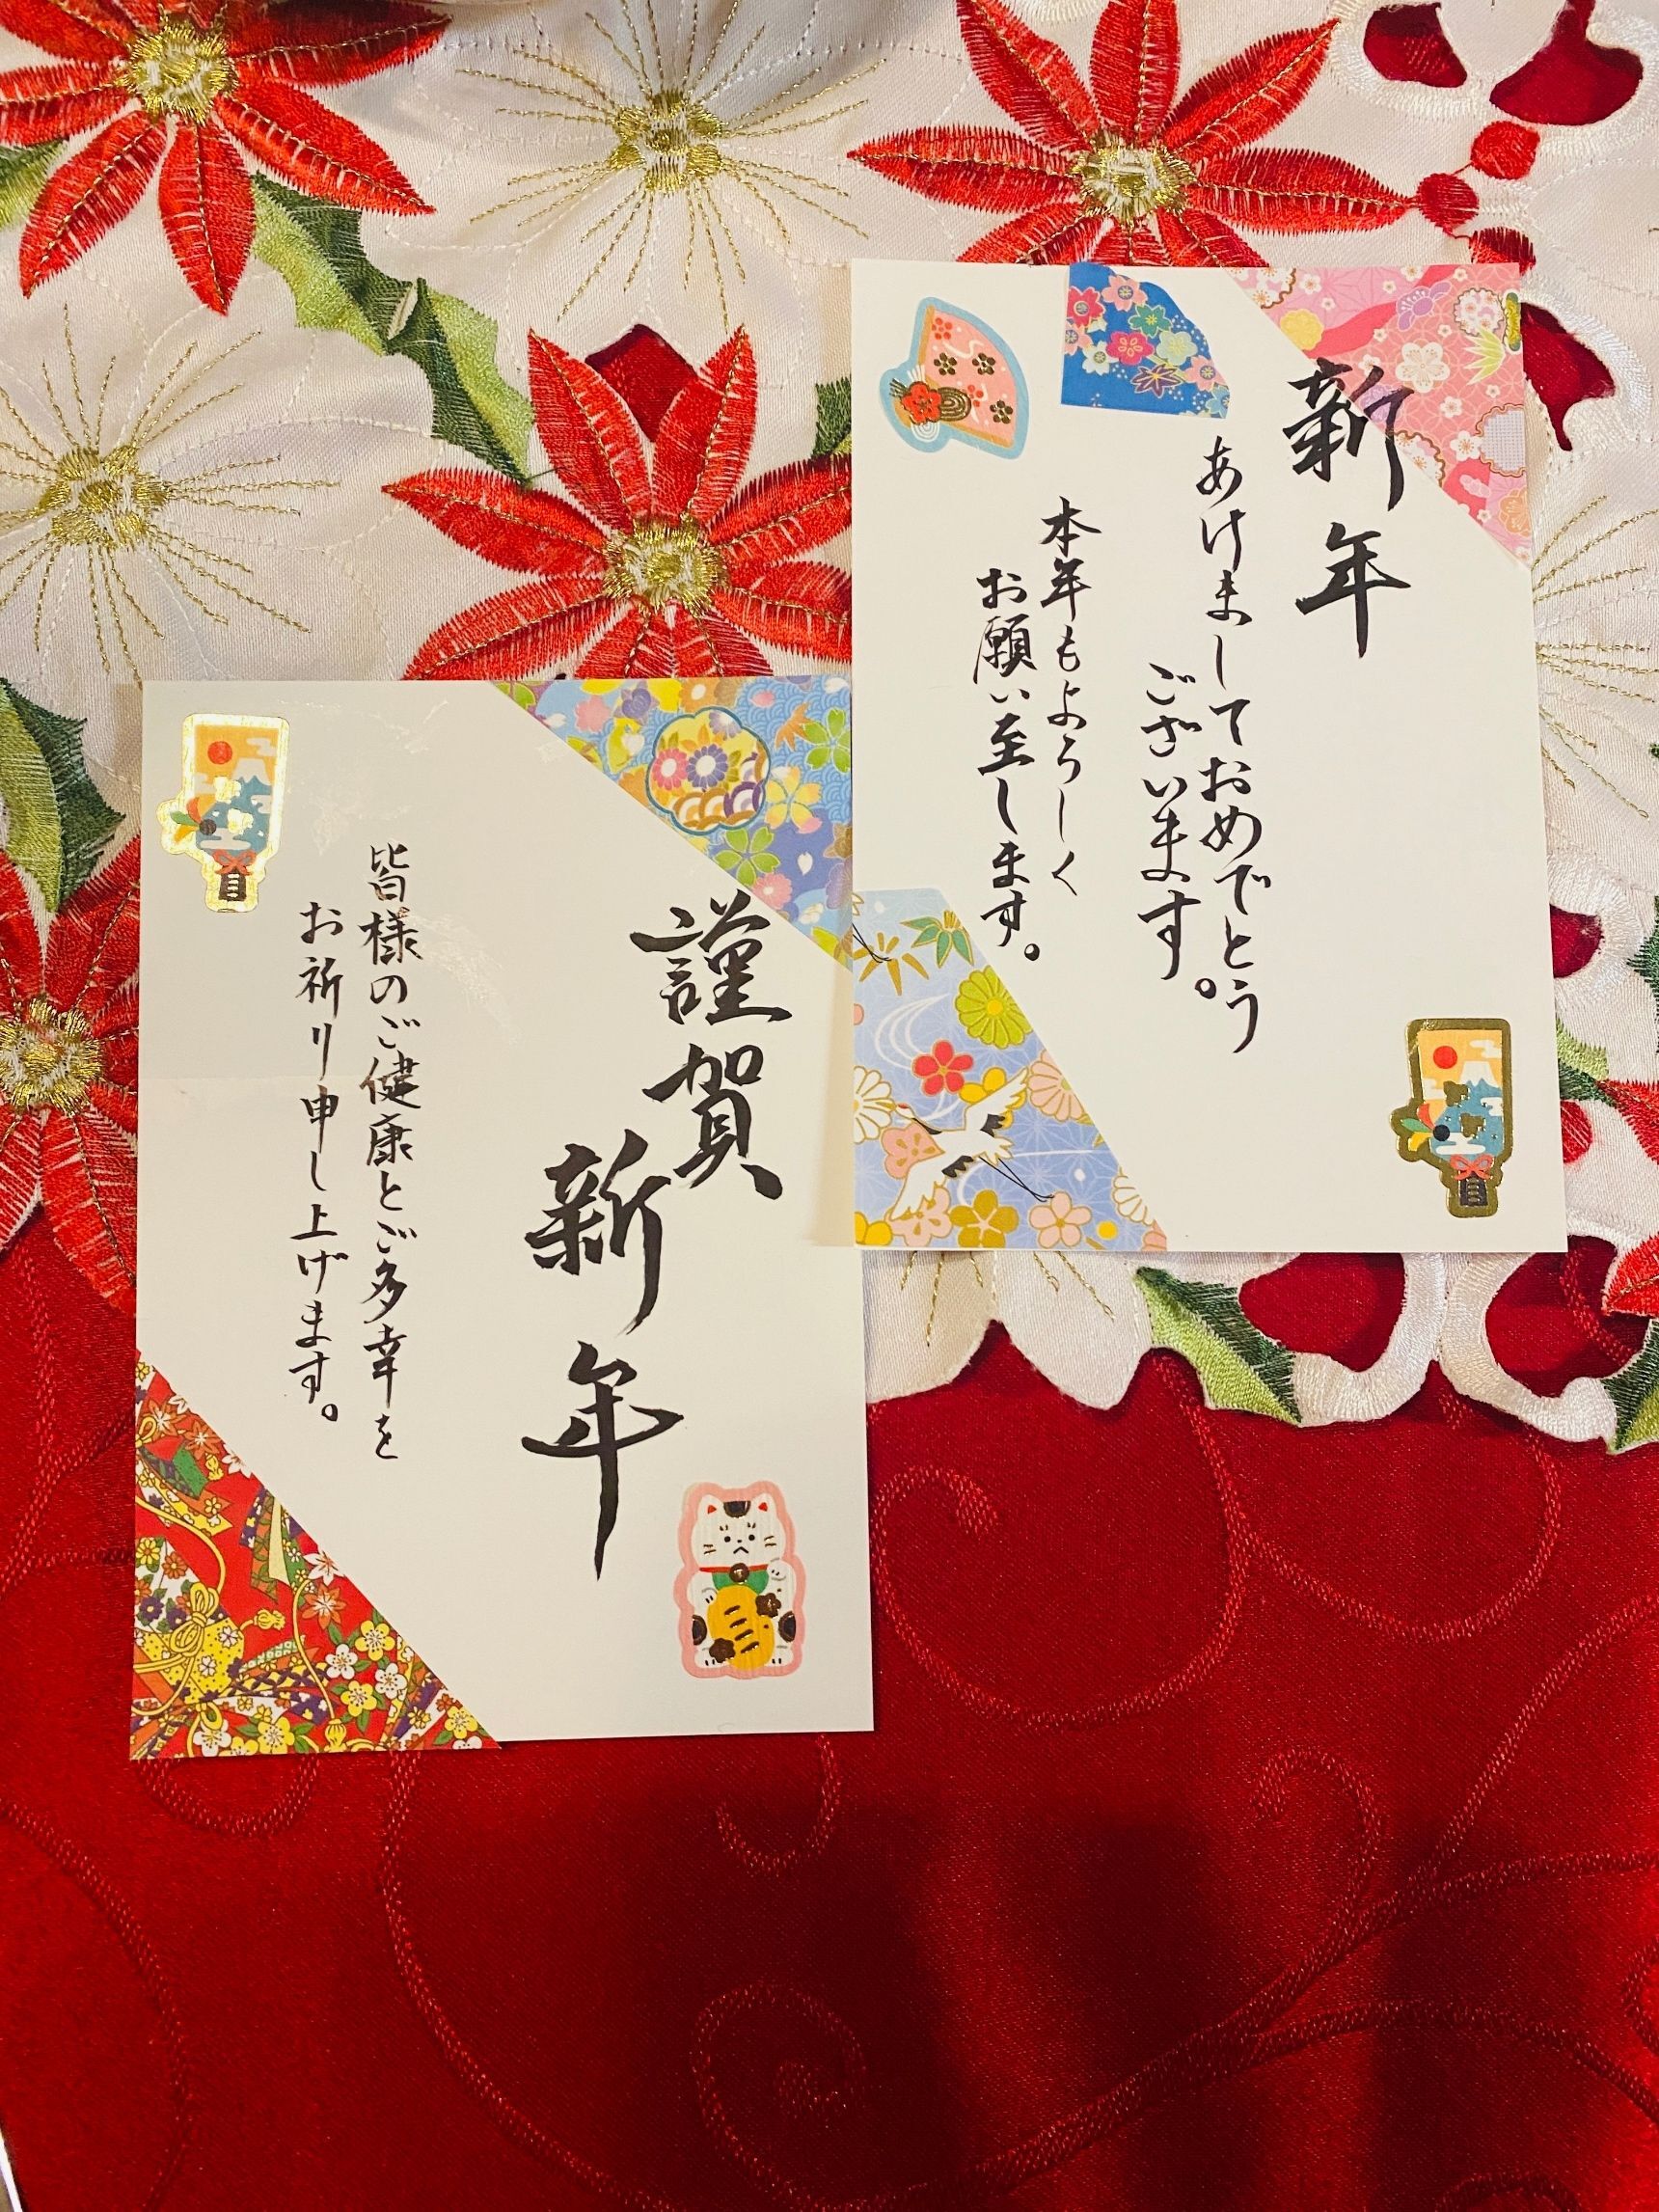 新年
あけましておめでとう
ございます。
本年もよろしく
お願い至します。
謹賀
新年
皆様のご健康とご多幸を
お祈り申し上げます。